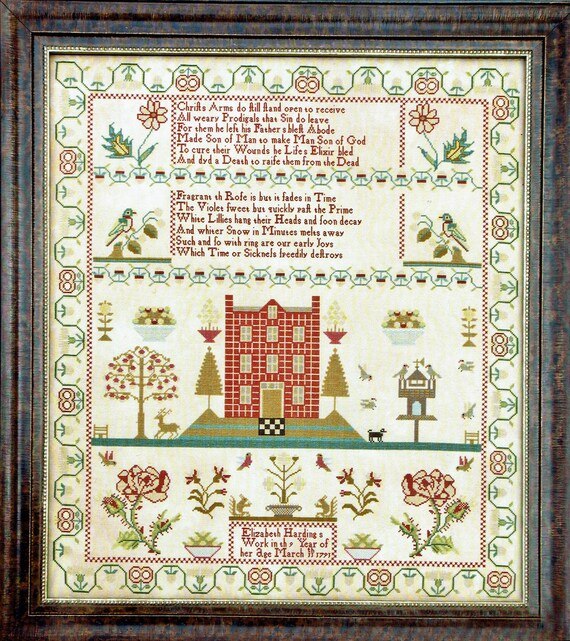 Chriſts Arms do ſtill ſtand open to receive
All weary Prodigals that Sin do leave
For them he left his Father s bleſt Abode
Made Son of Man to make Man Son of God
To cure their Wounds he Life s Elixir bled
And dyd a Death to raiſe them from the Dead
Fragrant th Roſe is but it fades in Time
The Violet ſweet but quickly paſt the Prime
White Lillies hang their Heads and ſoon decay
And whiter Snow in Minutes melts away
Such and ſo with ring are our early Joys
Which Time or Sickneſs ſpeedily deſtroys
Elizabeth Harding s
Work in th 9 Year of
her age March 1791